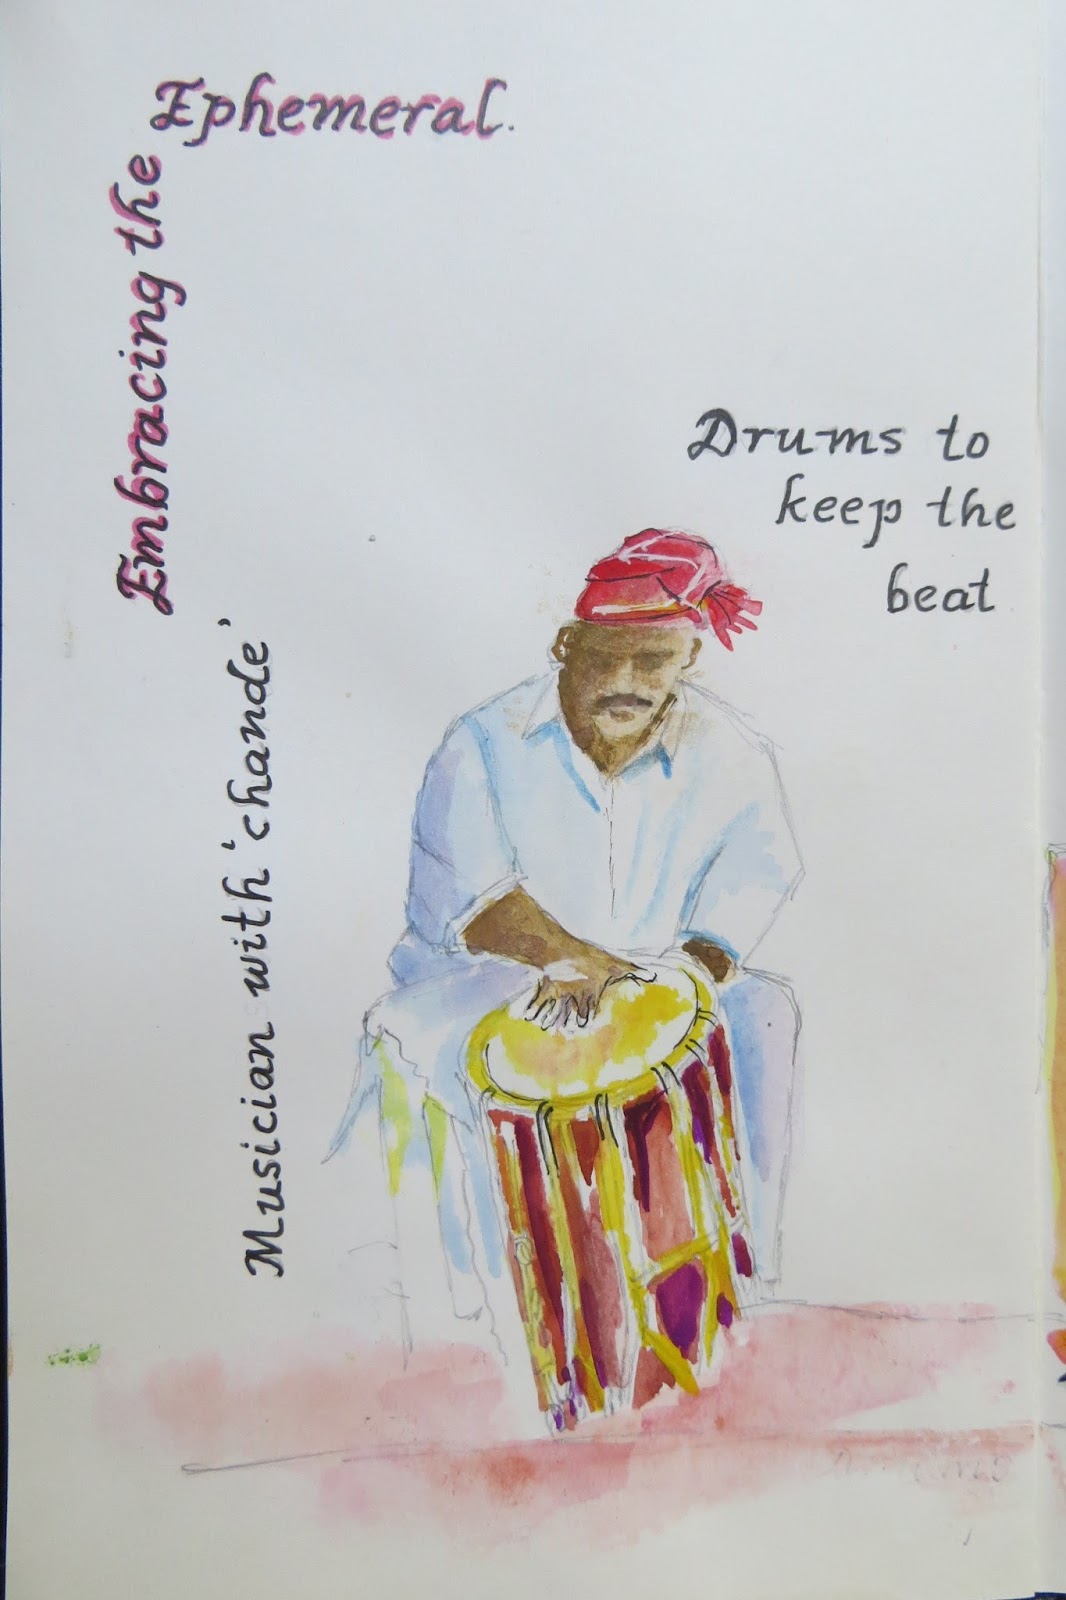 Embracing the
Ephemeral.
Musician with 'chande'
Drums to
keep the
beat